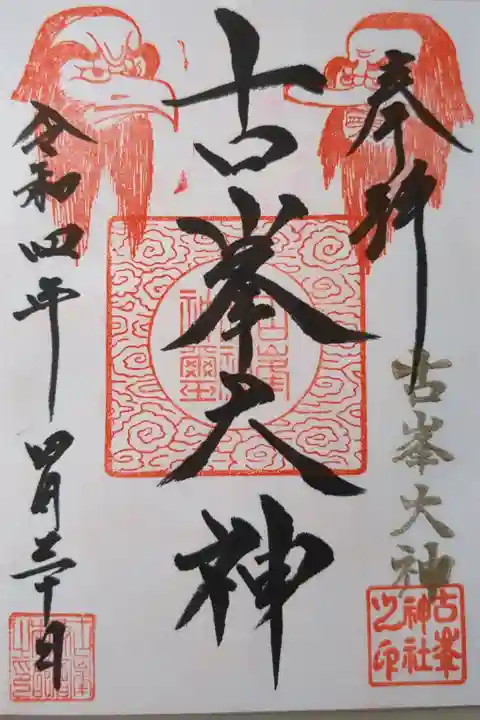 奉拝
古峯大神
古峯
神社
之印
古峯大神
古峯
神社
神璽
令和四年 四月三十日